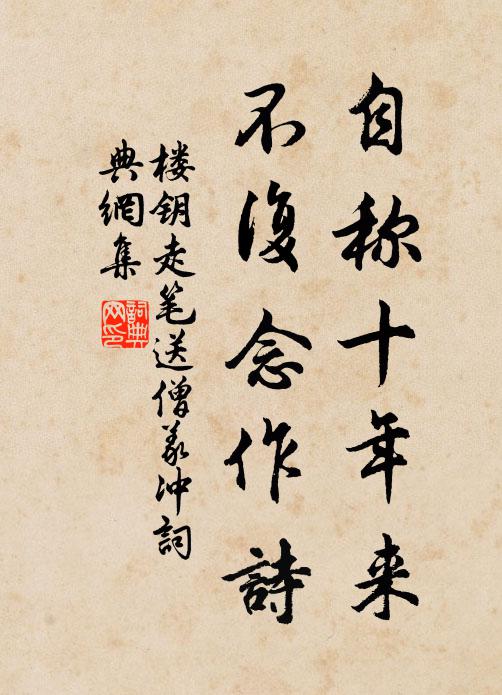 自称十年来
不復念作詩
楼钥走笔送僧羲冲詞
典網集
詞典网印